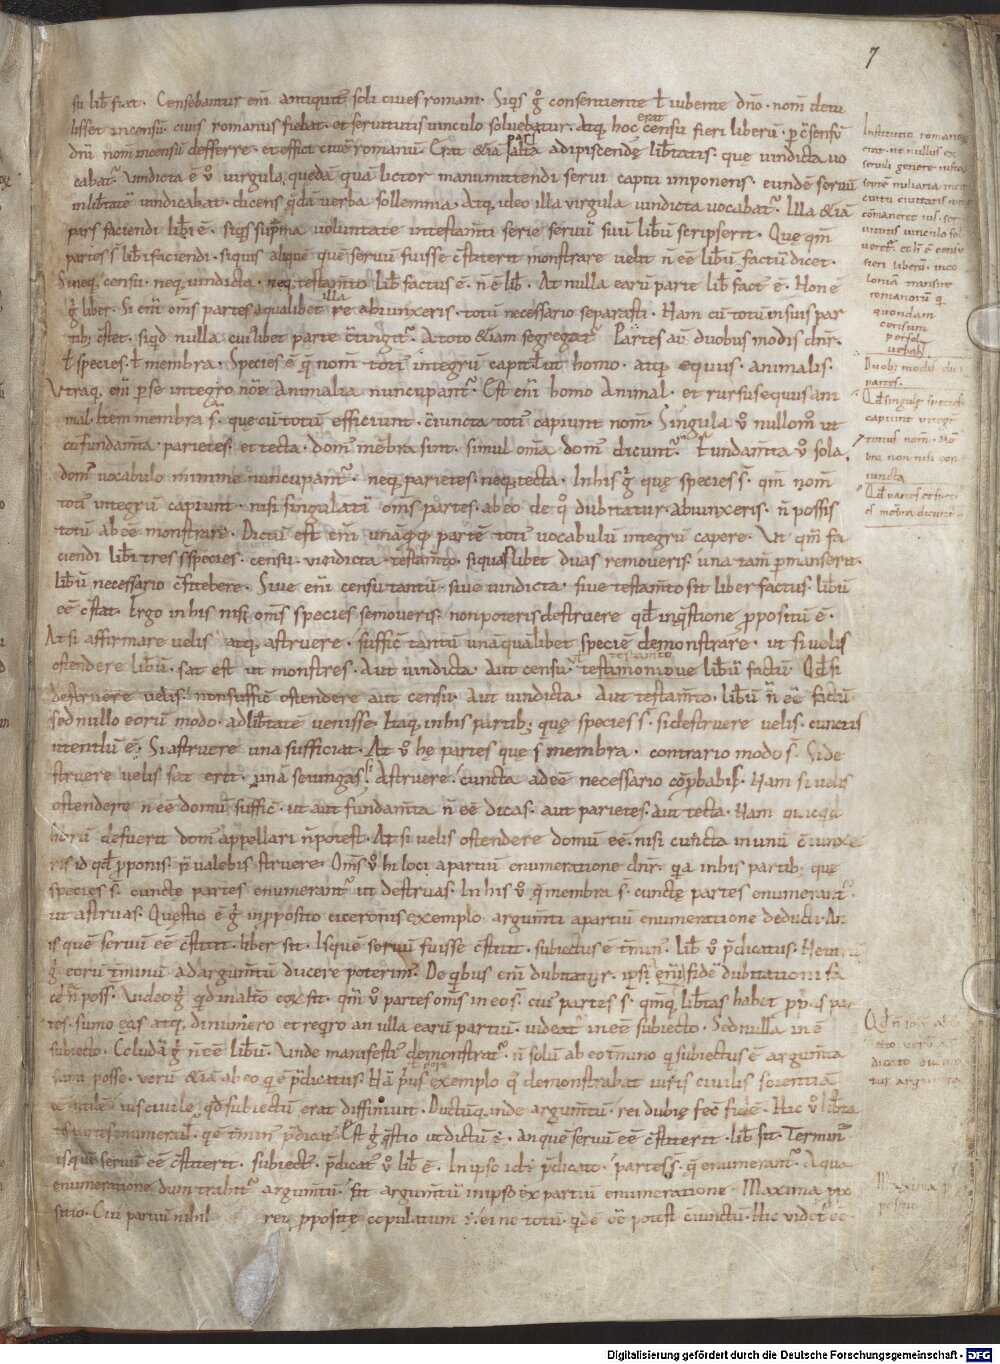 7
su lib̄ fiat. Censebantur eni̅ antiquit̾ soli ciues romani. Siq̾s g̊ consentiente ł iubente dn̅o. nom̅ detu
lisset incensu̅ ciuis romanus fiebat. et seruitutis uinculo soluebatur. Atq; hoc erat censu fieri liberu̅. p̱ c̅sensu̅
dn̅i nom̅ incensu̅ defferre. et effici ciue̅ romanu̅. Erat &ia̅ pars alt̾a adipiscendę lib̅tatis. quę uindicta uo
cabat᷑. Uindicta e̅ ů uirgula queda̅ qua̅ lictor manumittendi serui capiti imponens. eunde̅ seruu̅
in lib̅tate̅ uindicabat. dicens q̅da̅ uerba sollemnia. Atq; ideo illa uirgula uindicta uocabat᷑. Illa &ia̅
pars faciendi lib̅i e̅. siq̾s sup̅ma uoluntate in testam̅ti serie seruu̅ suu̅ lib̅u̅ scripserit. Que qm̅
partes s̅ lib̅i faciendi. siquis alique̅ que̅ seruu̅ fuisse c̅stiterit monstrare uelit n̅ ee̅ lib̅u̅ factu̅ dicet.
Si neq; censu. neq; uindicta. neq; testam̅to lib̅ factus e̅. n̅ e̅ lib̅. At nulla earu̅ parte lib̅ fact᷒ e̅. Non e̅
g̊ liber. Si eni̅ om̅s partes a qualibet illa re abiunxeris. totu̅ necessario separasti. Nam cu̅ totu̅ in suis par
tib; c̅stet. siq̾d nulla cui libet parte c̅tingit᷑. a toto &iam segregat᷑. Partes au̅ duobus modis dn̅r.
ł species. ł membra. Species e̅ q̨ nom̅ toti᷒ integru̅ capit. ł ut homo. atq; equus. animalis.
Utraq; eni̅ p̱ se integro no̅e animalia nuncupant᷑. Est eni̅ homo animal. et rursus equus ani
mal. Item membra s̅. que cu̅ totu̅ efficiunt. c̅iuncta toti᷒ capiunt nom̅. Singula ů nullom̊ ut
cu̅ fundam̅ta. parietes. et tecta. dom᷒ me̅bra sunt. simul om̅ia dom᷒ dicunt᷑. Fundam̅ta ů sola.
dom᷒ uocabulo minime nuncupant᷑. neq; parietes. neq; tecta. In his g̊ quę species s̅. qm̅ nom̅
toti᷒ integru̅ capiunt. nisi singulati̅ om̅s partes. ab eo de q̊ dubitatur. abiunxeris. n̅ possis
totu̅ abee̅ monstrare. Dictu̅ est eni̅ una̅q̅q; parte̅ toti᷒ uocabulu̅ integru̅ capere. Ut qm̅ fa
ciendi lib̅i tres s̅ species. censu. uindicta. testam̅to. siquas libet duas remoueris. una tam̅ p̱manserit.
lib̅u̅ necessario c̅fitebere. Siue eni̅ censu tantu̅. siue uindicta. siue testam̅to sit liber factus. lib̅u̅
ee̅ c̅stat. Ergo in his nisi om̅s species semoueris. non poteris destruere qd̅ inq̨stione p̱positu̅ e̅.
At si affirmare uelis atq; astruere. suffic̅ tantu̅ una̅ qualibet specie̅ demonstrare. ut si uelis
ostendere lib̅u̅. sat est ut monstres. Aut uindicta. aut censu. ł testamto testimonioue lib̅u̅ factu̅. Qd̅ si
destruere uelis. non suffic̅ ostendere aut censu. aut uindicta. aut testam̅to. lib̅u̅ n̅ ee̅ factu̅
sed nullo eoru̅ modo. ad lib̅tate̅ uenisse. Itaq; in his partib; quę species s̅. si destruere uelis. cunctis
utendu̅ e̅. Si astruere una sufficiat. At ů hę partes quę s̅ membra. contrario modo s̅. Si de
struere uelis sat erit. una̅ seiungas. Si astruere. cuncta adee̅ necessario co̅p̱babis. Nam si uelis
ostendere n̅ ee̅ domu̅. suffic̅. ut aut fundam̅ta n̅ ee̅ dicas. aut parietes. aut tecta. Nam quicqd
horu̅ defuerit dom᷒ appellari n̅ potest. At si uelis ostendere domu̅ ee̅. nisi cuncta in unu̅ c̅iunxe
ris id qd̅ p̱ponis. n̅ ualebis struere. Om̅s ů hi loci a partiu̅ enumeratione dn̅r. q̾a in his partib; quę
species s̅. cunctę partes enumerant᷑ ut destruas. In his ů q̨ membra s̅. cunctę partes enumerant᷑
ut astruas. Questio e̅ g̊ in p̱posito ciceronis exemplo. argum̅ti a partiu̅ enumeratione deducti. An
is que̅ seruu̅ ee̅ c̅stitit. liber sit. Is que̅ seruu̅ fuisse c̅stitit. subiectus e̅ t̅min᷒. lib̅ ů p̅dicatus.
g̊ eoru̅ t̅minu̅ ad argum̅tu̅ ducere poterim᷒. De q̾bus eni̅ dubitatur. ipsi eni̅ fide̅ dubitationi fa
ce̅ n̅ poss̅. Uideo g̊ q̾d in alt̾o eor̅ sit. qm̅ ů partes om̅s in eo s̅. cui᷒ partes s̅. qm̅q; lib̅tas habet p̱prias par
tes. sumo eas atq; dinumero et req̾ro an ulla earu̅ partiu̅. uideat᷑ inee̅ subiecto. Sed nulla in e̅
subiecto. Co̅cludā g̊ n̅ ee̅ lib̅u̅. Unde manifestu̅ demonstrat᷑. n̅ solu̅ ab eo t̅mino q̾ subiectus e̅ argum̅ta
sumi posse. ueru̅ &ia̅ ab eo q̾ e̅ p̅dicatus. Na̅ p̾us exemplo q̊ demonstrabat iuris ciuilis scientia̅
ee̅ utile̅ ius ciuile. qd̅ subiectu̅ erat diffiniuit. Ductu̅q; inde argum̅tu̅. rei dubię fec̅ fide̅. Hic ů lib̅ta
tis partes enumerat᷑. q̾ e̅ t̅min᷒ p̅dicat᷒. Est g̊ q̨stio ut dictu̅ e̅. an que̅ seruu̅ ee̅ c̅stiterit. lib̅ sit. Termin᷒
is que̅ seruu̅ ee̅ c̅stiterit. subiect᷒. p̅dicat᷒ ů lib̅ e̅. In ipso p̅dicato. partes s̅. q̨ enumerant᷑. A qua
enumeratione dum trahit᷑ argum̅tu̅. fit argum̅tu̅ in ipso ex partiu̅ enumeratione. Maxima p̱po
sitio. Cui partiu̅ nihil rei p̱positę copulatum e̅. ei nec totu̅. q̾d e̅ ee̅ potest c̅iunctu̅. Hic uidet᷑ ee̅
Institutio romanoru̅
erat. ne nullus ex
seruili genere infra
co̅manceret ius. ser
uitutis uinculo sol
fieri liberu̅.
romanoru̅ q̨
quondam
censum
persolu
uebat.
Duob; modis dici
partes.
Qd̅ singulę species
capiunt integri
totius nom̅. Me̅
bra non nisi con
iuncta
Qd̅ partes & speci
es me̅bra dicunt᷑.
Maxima p̱
positio
Digitalisierung gefördert durch die Deutsche Forschungsgemeinschaft - DFG